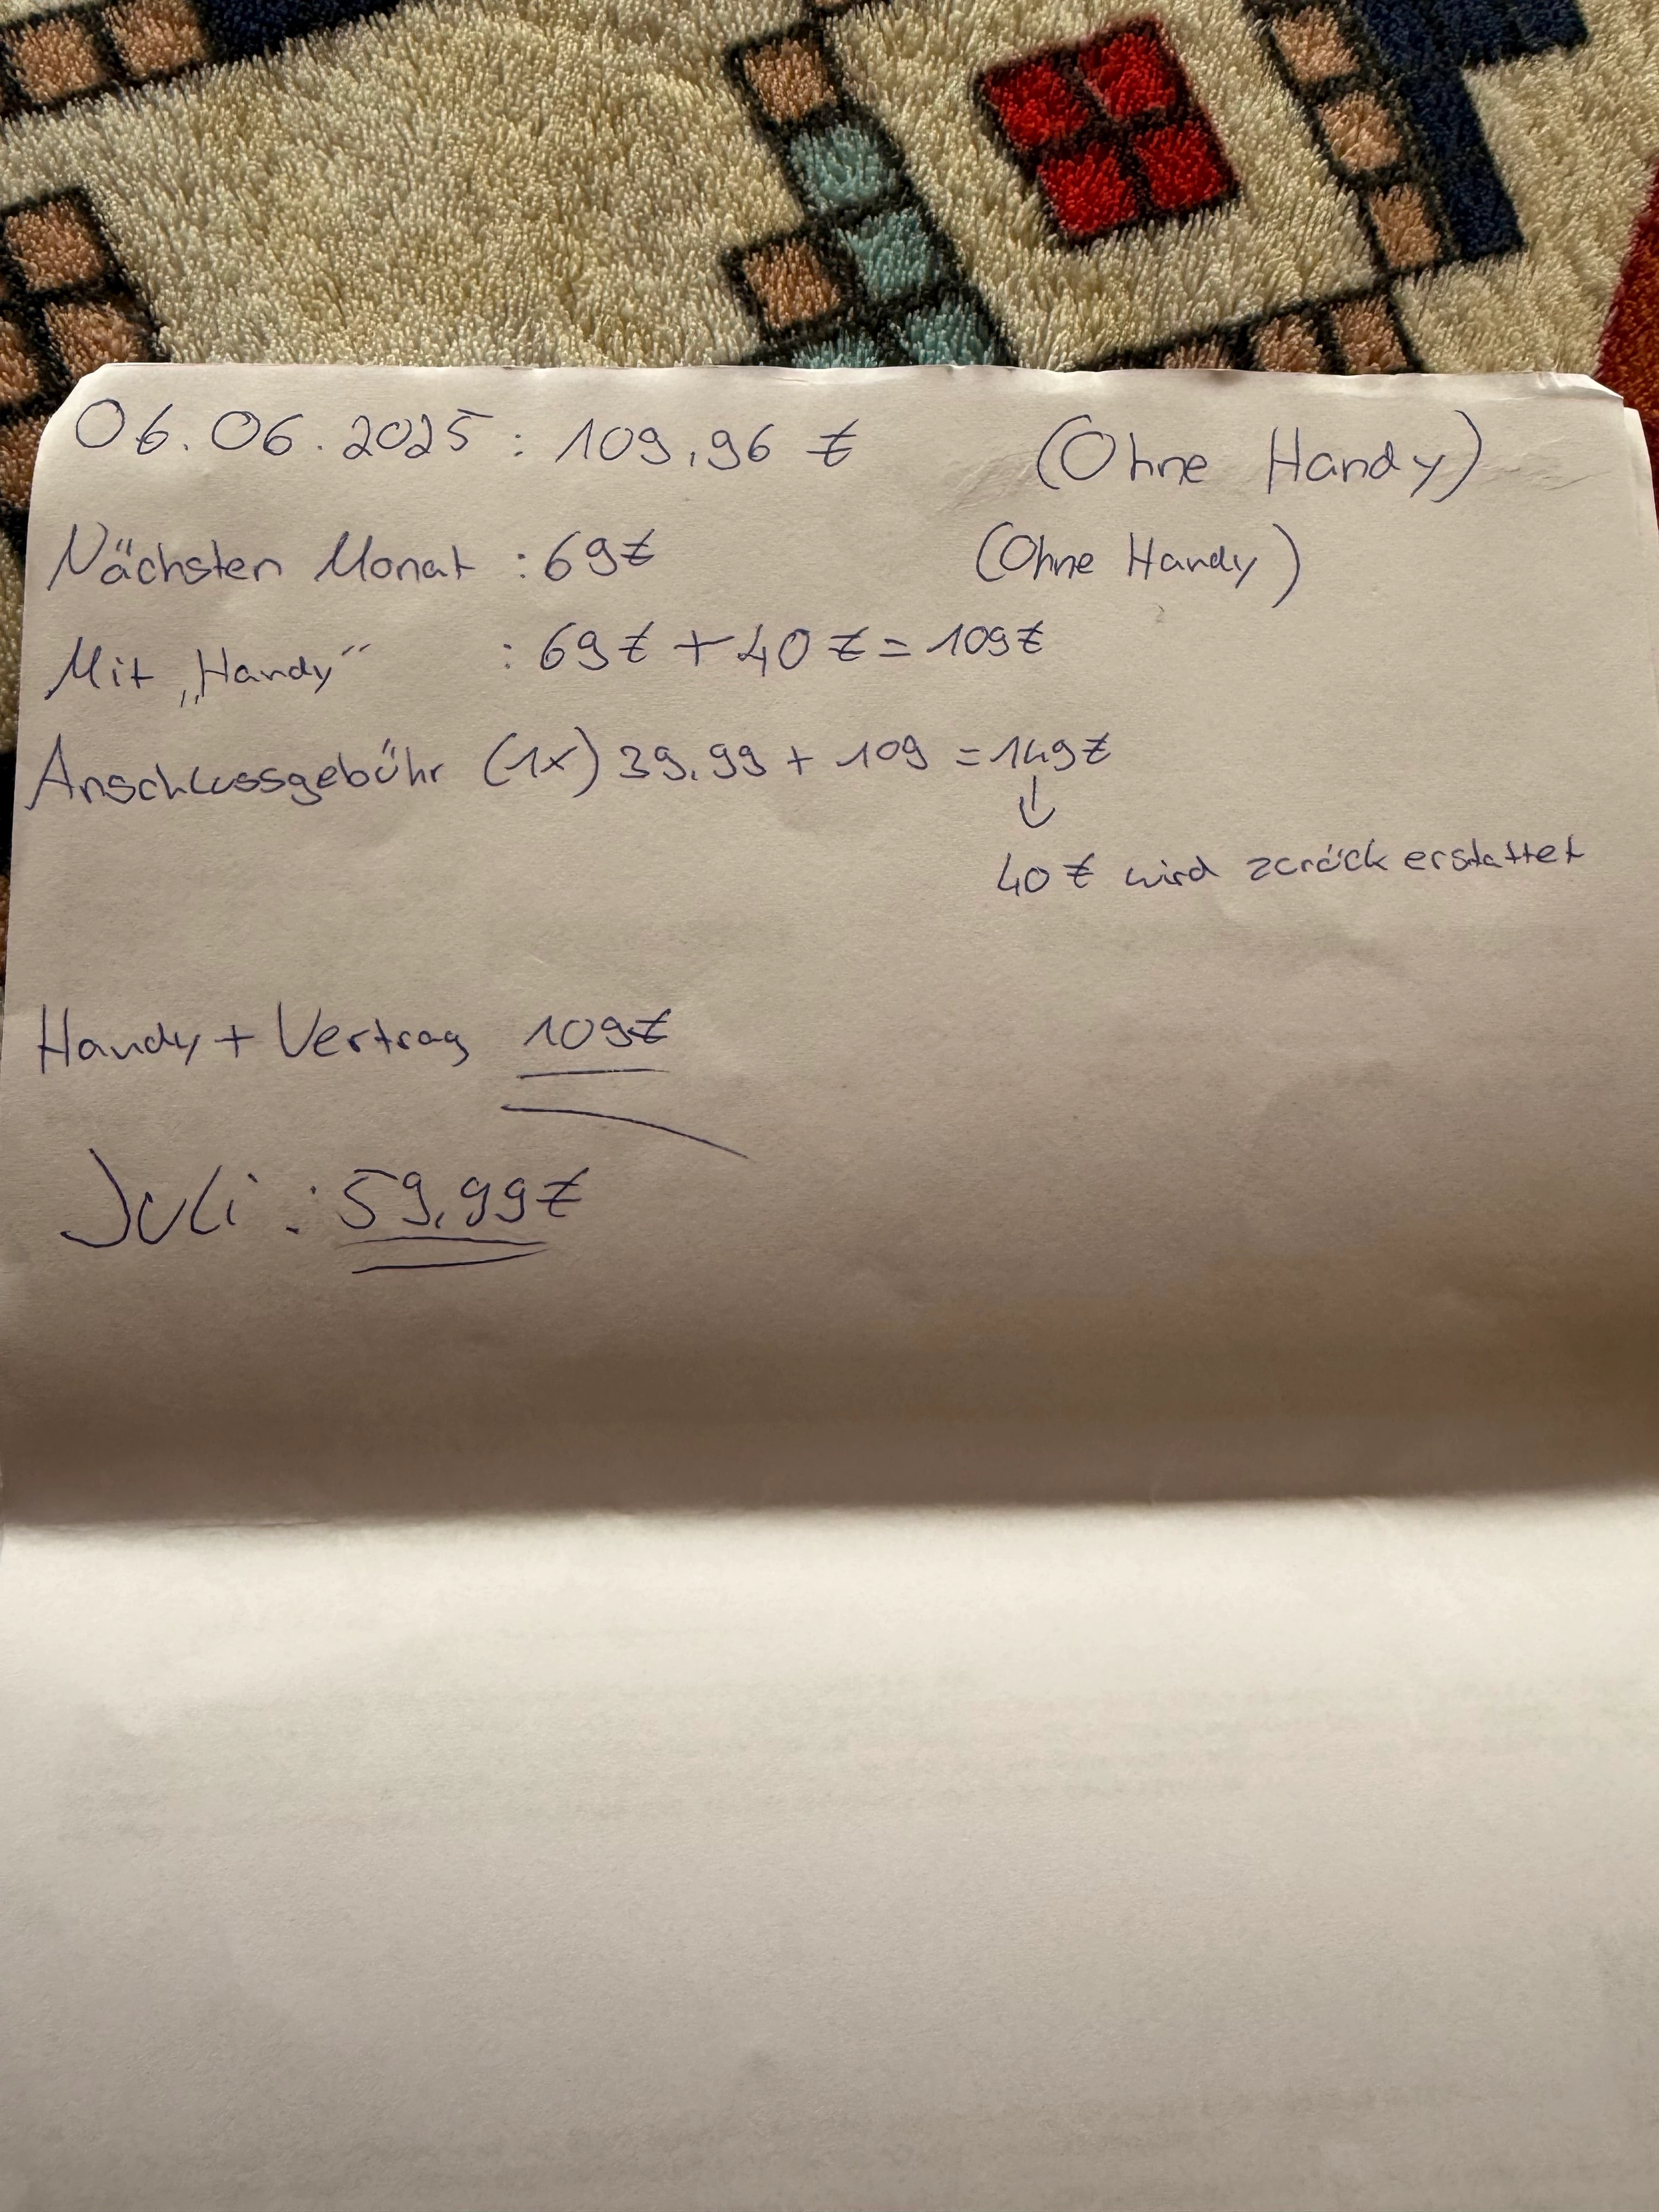 06.06.2025 : 109,96 € (Ohne Handy)
Nächsten Monat : 69€ (Ohne Handy)
Mit „Handy“ : 69€ + 40€ = 109€
Anschlussgebühr (1x) 39,99 + 109 = 149€
↓
40€ wird zurück erstattet
Handy + Vertrag 109€
Juli : 59,99€